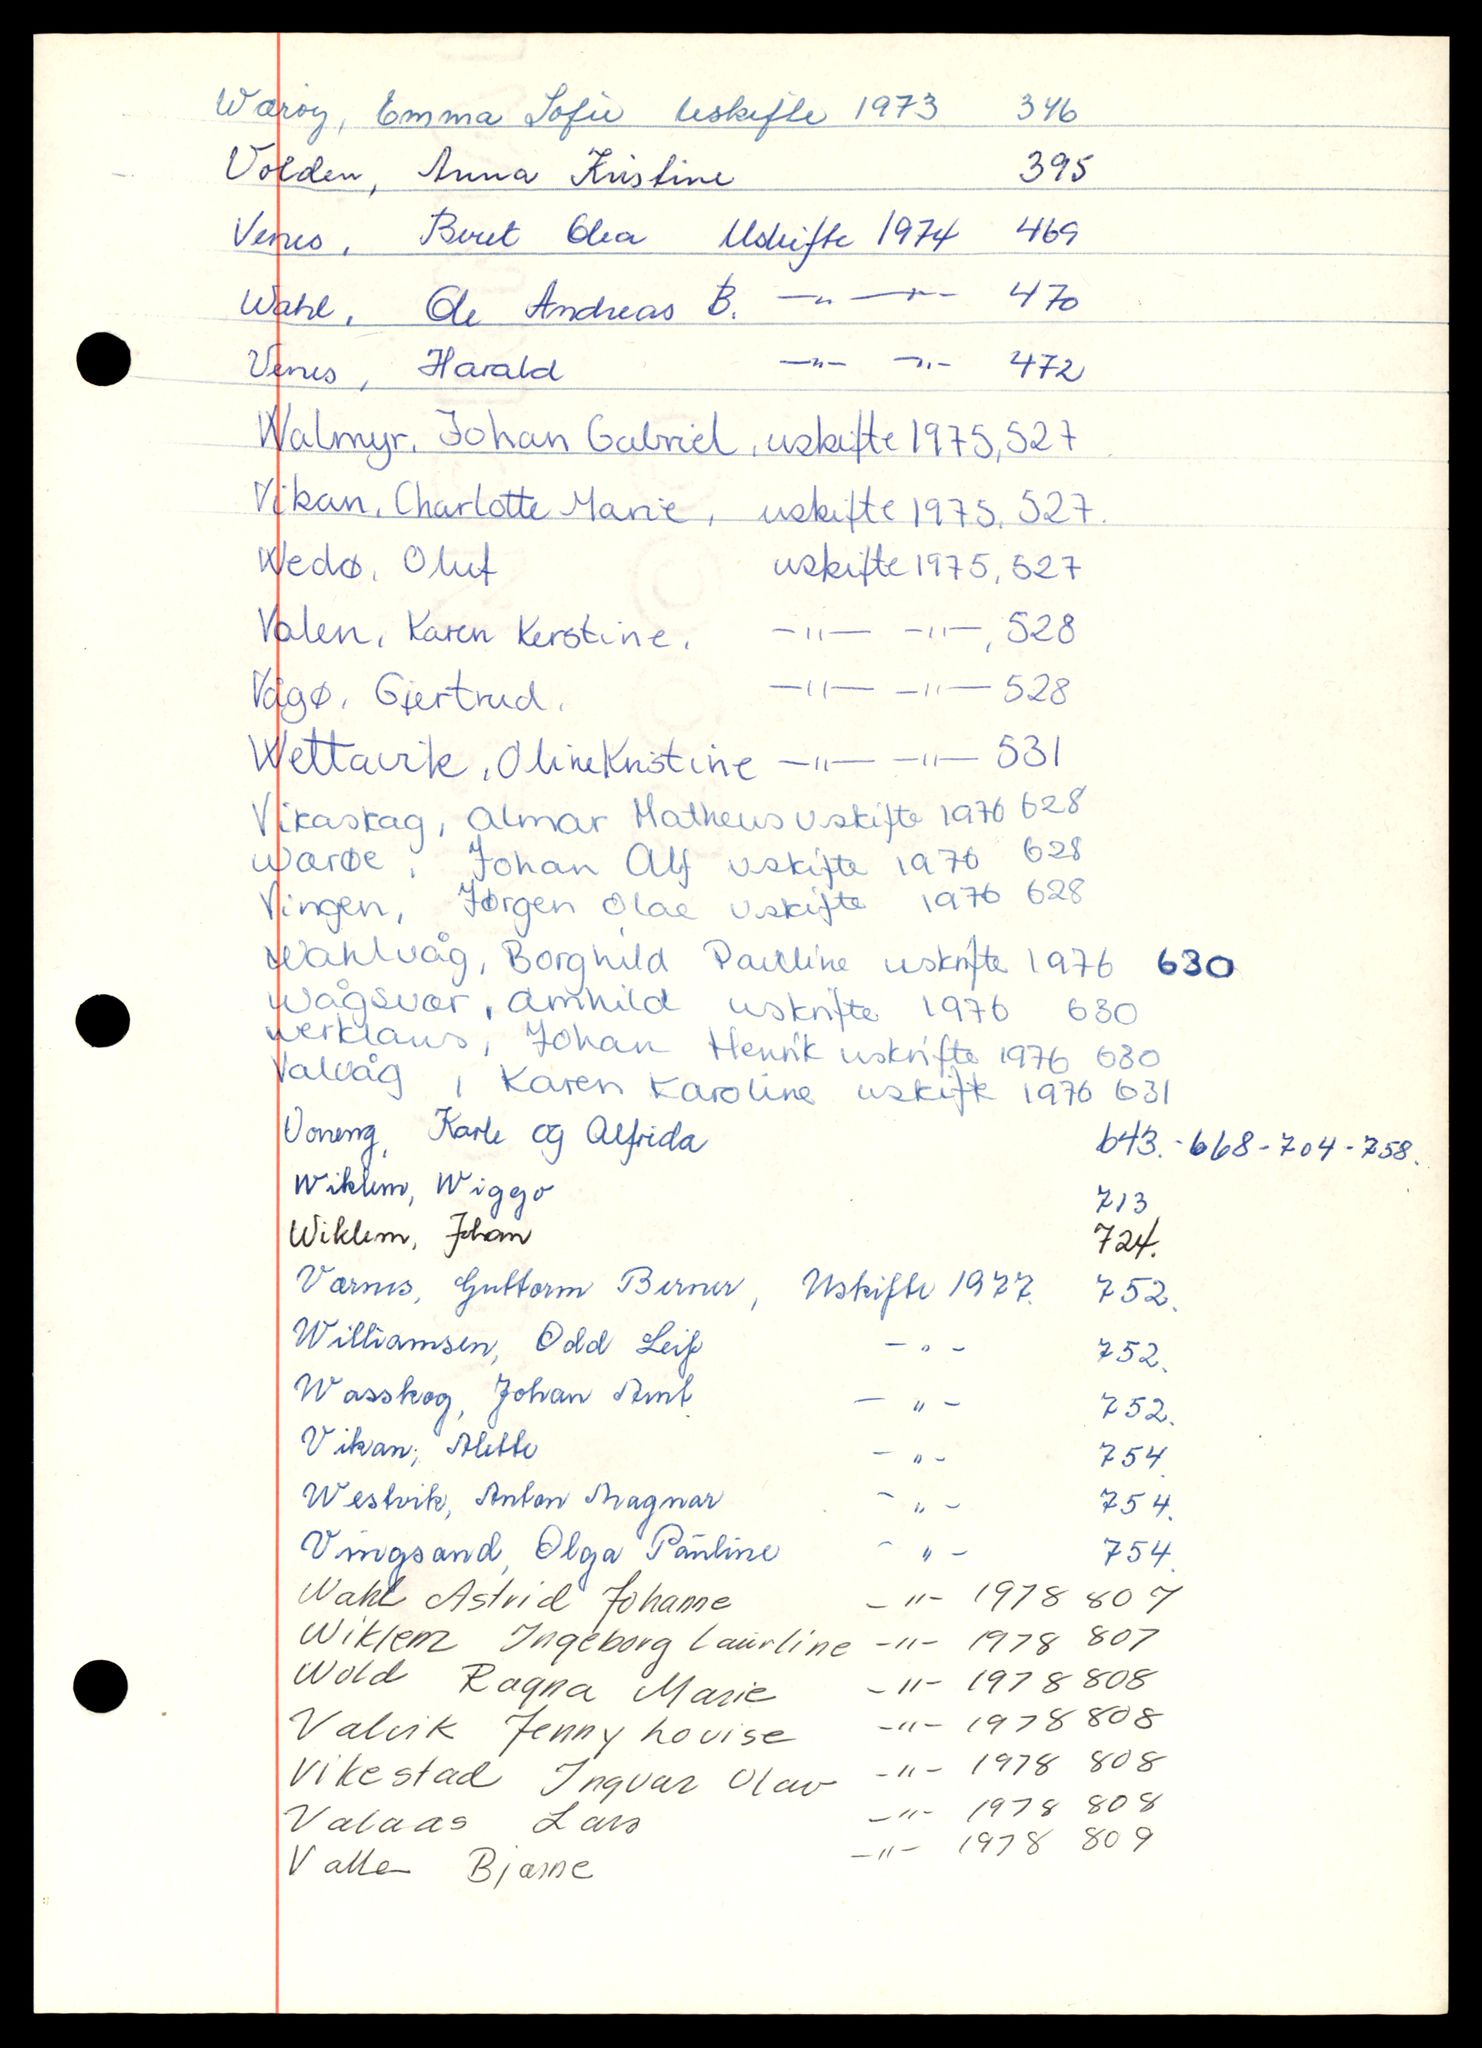 Warøy, Emma Sofie Uskifte 1973 346
Volden, Anna Kristine 395
Venes, Beret Olea Uskifte 1974 469
Wahl, Ole Andreas B. —„— —„— 470
Venes, Harald —„— —„— 472
Walmyr, Johan Gabriel, uskifte 1975, 527
Vikan, Charlotte Marie, uskifte 1975, 527.
Wedø, Oluf uskifte 1975, 527
Valen, Karen Kerstine, —"— —"—, 528
Vågø, Gjertrud. —"— —"— 528
Wettavik, Oline Kristine —"— —"— 531
Vikaskag, Almar Matheus Uskifte 1976 628
Wærøe, Johan Alf uskifte 1976 628
Vingen, Jørgen Olae uskifte 1976 628
Wahlvåg, Borghild Pauline uskrifte 1976 630
Wågsvær, Arnhild uskrifte 1976 630
Werklaus, Johan Henrik uskrifte 1976 630
Valvåg, Karen Karoline uskifte 1976 631
Voneng, Karle og Alfrida 643.-668-704-758.
Wiklem, Wiggo 713
Wiklem, Johan 724.
Værnes, Guttorm Berner, Uskifte 1977. 752.
Williamsen, Odd Leif - " - 752.
Wasskog, Johan Arnt - " - 752.
Vikan, Alette - " - 754.
Westvik, Anton Magnar - " - 754.
Vingsand, Olga Pauline - " - 754.
Wahl Astrid Johanne -"- 1978 807
Wiklem Ingeborg Laurline -"- 1978 807
Wold Ragna Marie -"- 1978 808
Valvik Jenny Louise -"- 1978 808
Vikestad Ingvar Olav -"- 1978 808
Valaas Lars -"- 1978 808
Valle Bjarne -"- 1978 809